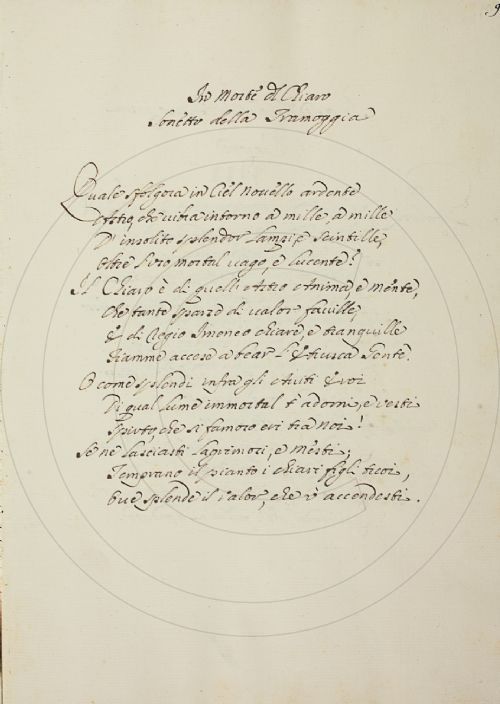 9
In Morte del Chiaro
Sonetto della Tramoggia
Quale sfolgora in Ciel novello ardente
Astro, che vibra intorno a mille, a mille
D' insolito splendor lampi, e scintille,
Oltre Sirio mortal vago, e lucente?
Il Chiaro è di quell' Astro Anima, e mente,
Che tante sparse di valor faville,
E di Regio Imeneo chiare, e tranquille
Fiamme accese a bear l' Etrusca Gente.
O come splendi infra gli Astri Eroi
Di qual lume immortal t' adorni, e vesti
Spirto, che sì famoso eri tra noi!
Se ne lasciasti lagrimosi, e mesti,
Temprano il pianto i chiari figli tuoi,
Ove splende il valor, che v' accendesti.